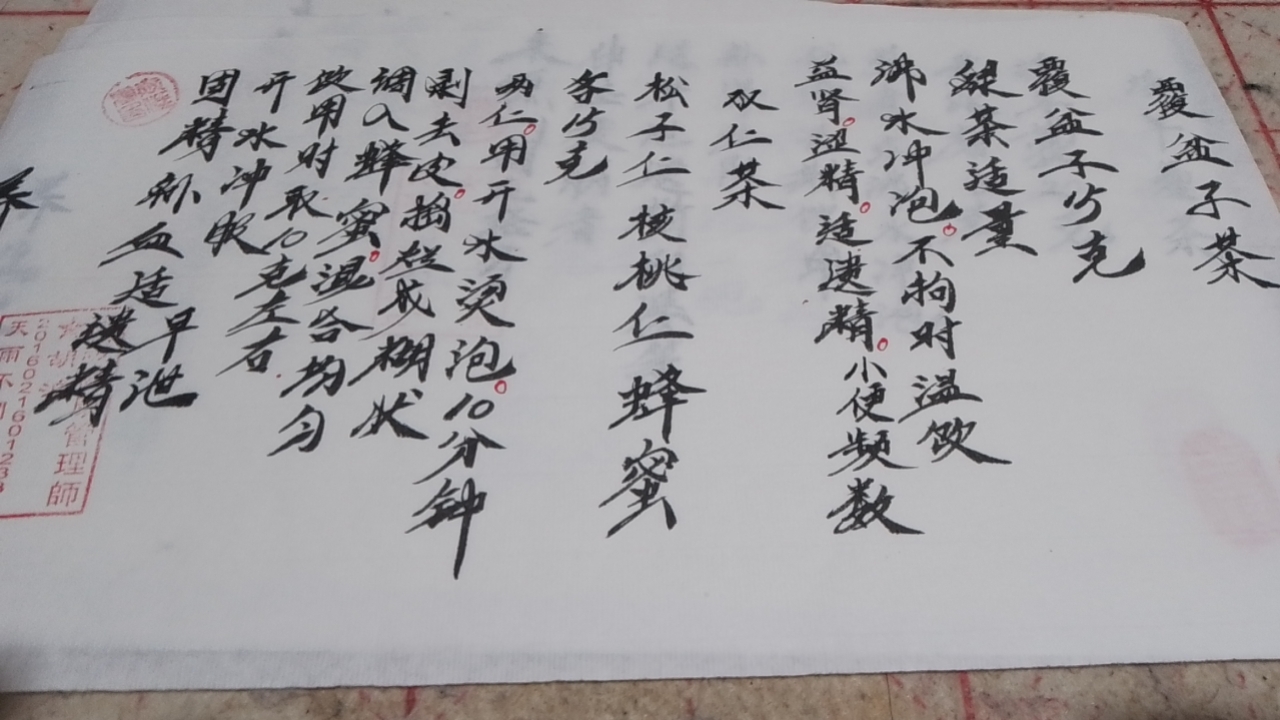 覆盆子茶
覆盆子15克
绿茶适量
沸水冲泡。不拘时温饮
益肾。涩精。适遗精。小便频数
双仁茶
松子仁核桃仁蜂蜜
各15克
两仁。用开水烫泡。10分钟
剥去皮。捣烂成糊状
调入蜂蜜。混合均匀
饮用时取10克左右
开水冲饮
固精补血适早泄
遗精
茶
管理師
天雨不